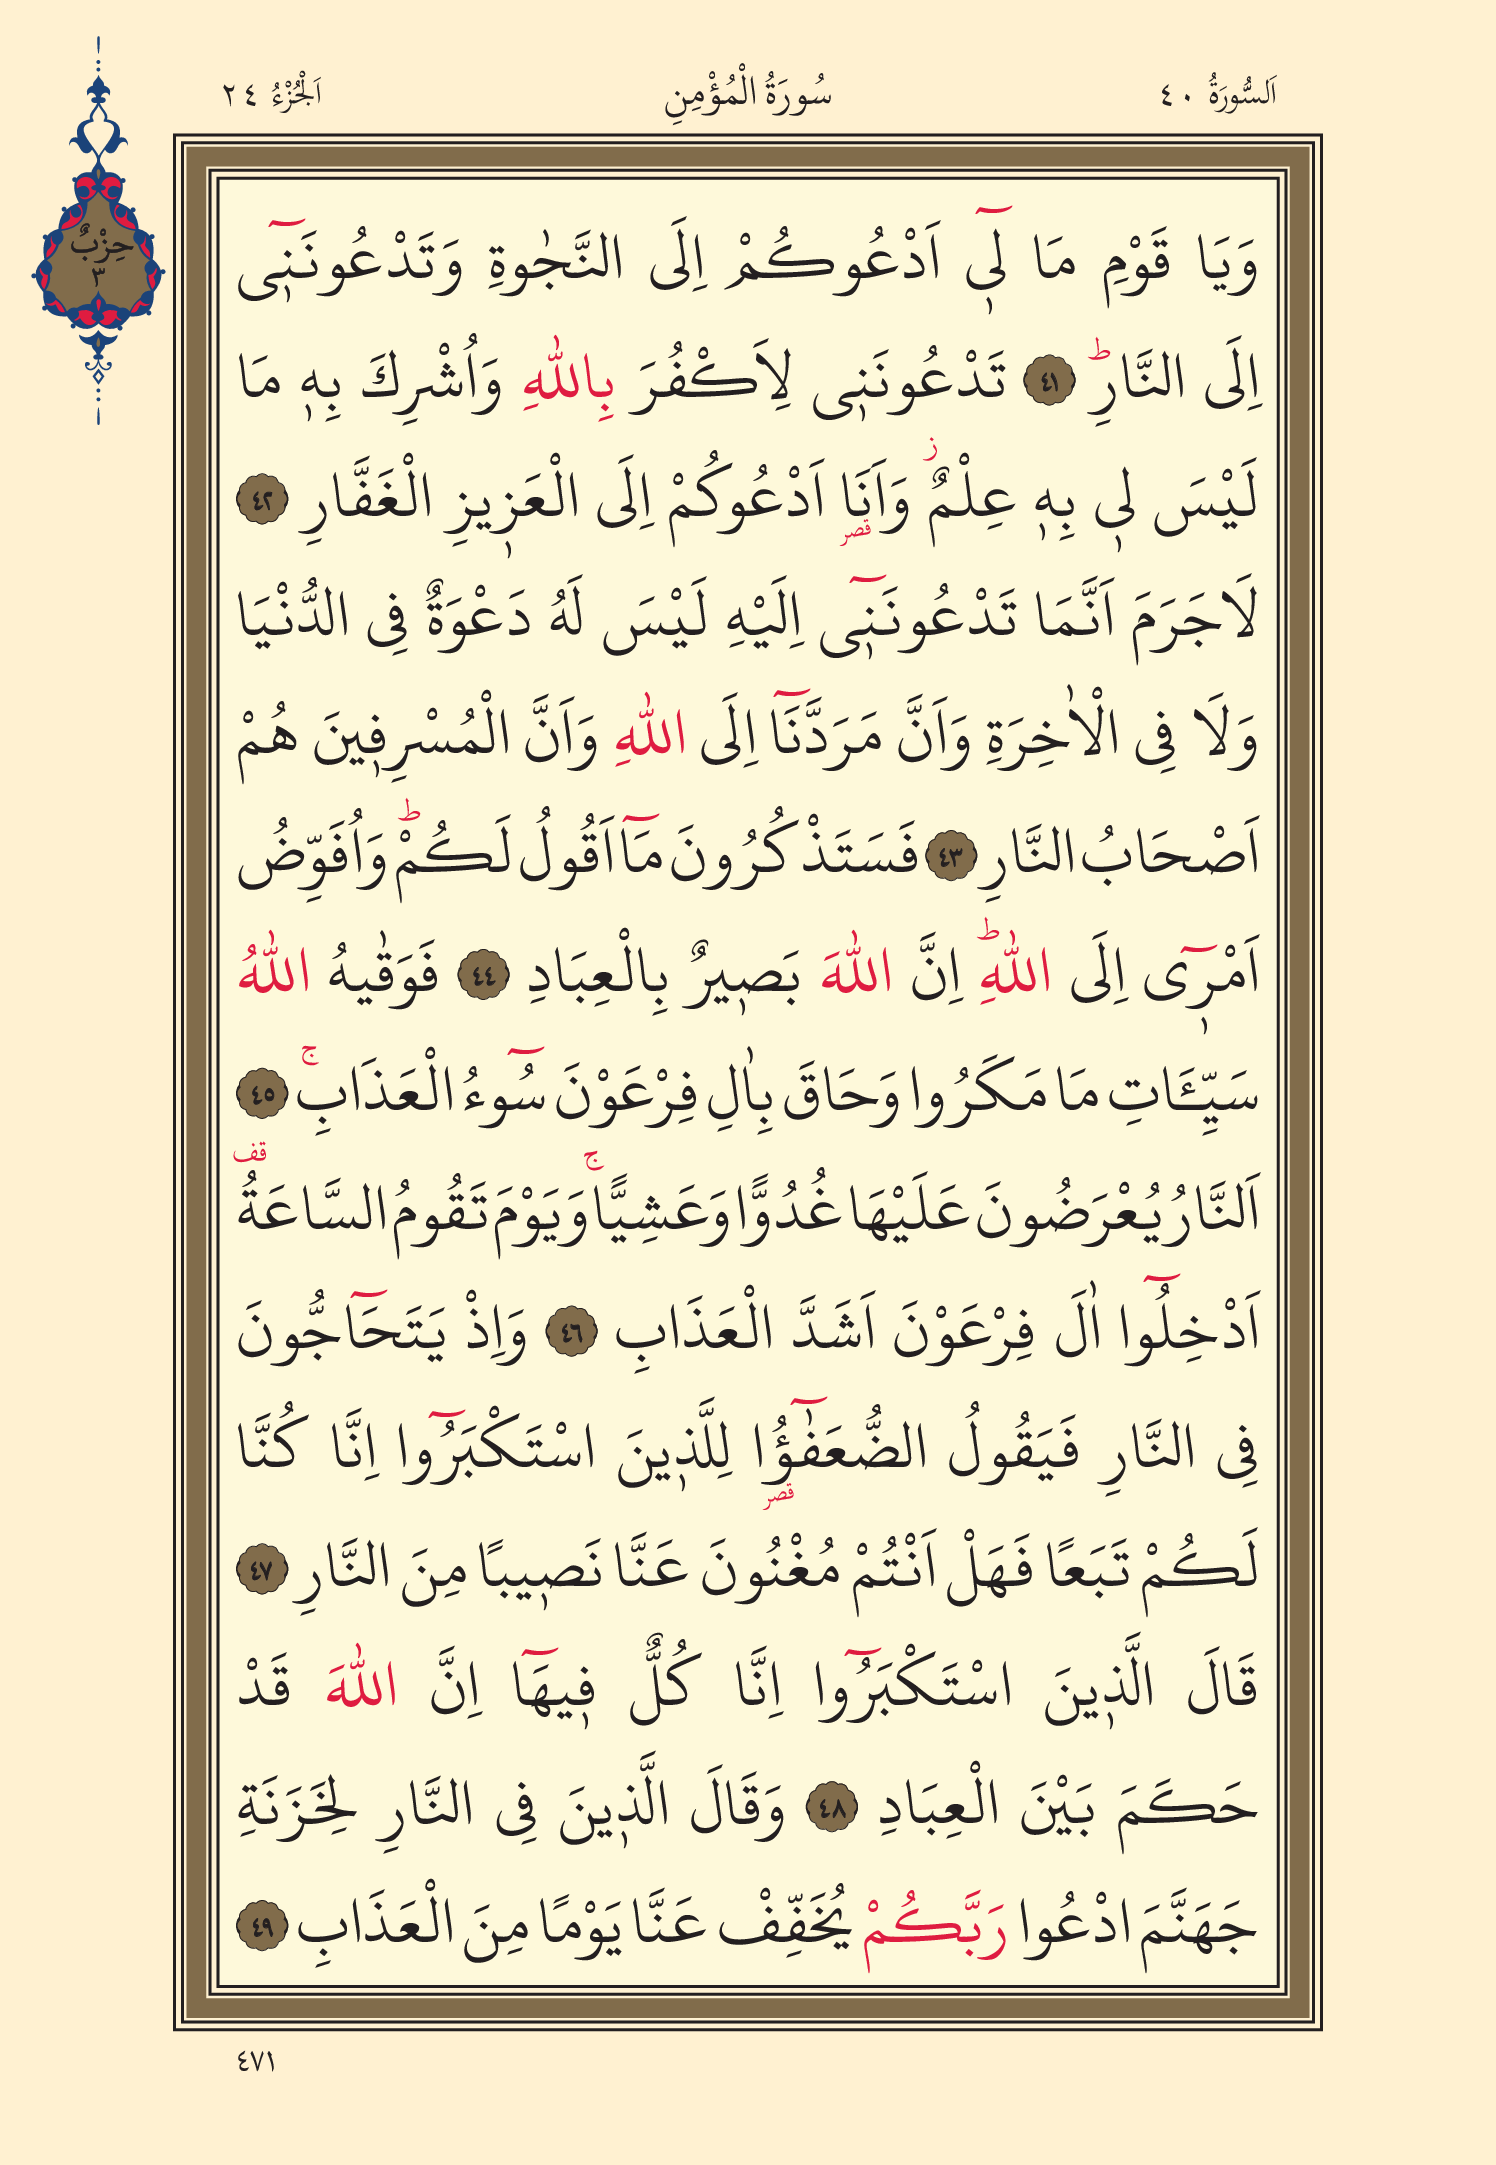 اَلسُّورَةُ ٤٠
سُورَةُ الْمُؤْمِنِ
اَلْجُزْءُ ٢٤
حِزْبٌ
٣
وَيَا قَوْمِ مَا لٖٓي اَدْعُوكُمْ اِلَى النَّجٰوةِ وَتَدْعُونَنٖٓي
اِلَى النَّارِؕ ٤١ تَدْعُونَنٖي لِاَكْفُرَ بِاللّٰهِ وَاُشْرِكَ بِهٖ مَا
لَيْسَ لٖي بِهٖ عِلْمٌؗ وَاَنَا۬ اَدْعُوكُمْ اِلَى الْعَزٖيزِ الْغَفَّارِ ٤٢
قصر
لَاجَرَمَ اَنَّمَا تَدْعُونَنٖٓي اِلَيْهِ لَيْسَ لَهُ دَعْوَةٌ فِي الدُّنْيَا
وَلَا فِي الْاٰخِرَةِ وَاَنَّ مَرَدَّنَٓا اِلَى اللّٰهِ وَاَنَّ الْمُسْرِفٖينَ هُمْ
اَصْحَابُ النَّارِ ٤٣ فَسَتَذْكُرُونَ مَٓا اَقُولُ لَكُمْؕ وَاُفَوِّضُ
اَمْرٖٓي اِلَى اللّٰهِؕ اِنَّ اللّٰهَ بَصٖيرٌ بِالْعِبَادِ ٤٤ فَوَقٰيهُ اللّٰهُ
سَيِّـَٔاتِ مَا مَكَرُوا وَحَاقَ بِاٰلِ فِرْعَوْنَ سُٓوءُ الْعَذَابِۚ ٤٥
اَلنَّارُ يُعْرَضُونَ عَلَيْهَا غُدُوًّا وَعَشِيًّاۚ وَيَوْمَ تَقُومُ السَّاعَةُ قف
اَدْخِلُٓوا اٰلَ فِرْعَوْنَ اَشَدَّ الْعَذَابِ ٤٦ وَاِذْ يَتَحَٓاجُّونَ
فِي النَّارِ فَيَقُولُ الضُّعَفٰٓؤُا لِلَّذٖينَ اسْتَكْبَرُٓوا اِنَّا كُنَّا
قصر
لَكُمْ تَبَعًا فَهَلْ اَنْتُمْ مُغْنُونَ عَنَّا نَصٖيبًا مِنَ النَّارِ ٤٧
قَالَ الَّذٖينَ اسْتَكْبَرُٓوا اِنَّا كُلٌّ فٖيهَٓا اِنَّ اللّٰهَ قَدْ
حَكَمَ بَيْنَ الْعِبَادِ ٤٨ وَقَالَ الَّذٖينَ فِي النَّارِ لِخَزَنَةِ
جَهَنَّمَ ادْعُوا رَبَّكُمْ يُخَفِّفْ عَنَّا يَوْمًا مِنَ الْعَذَابِ ٤٩
٤٧١